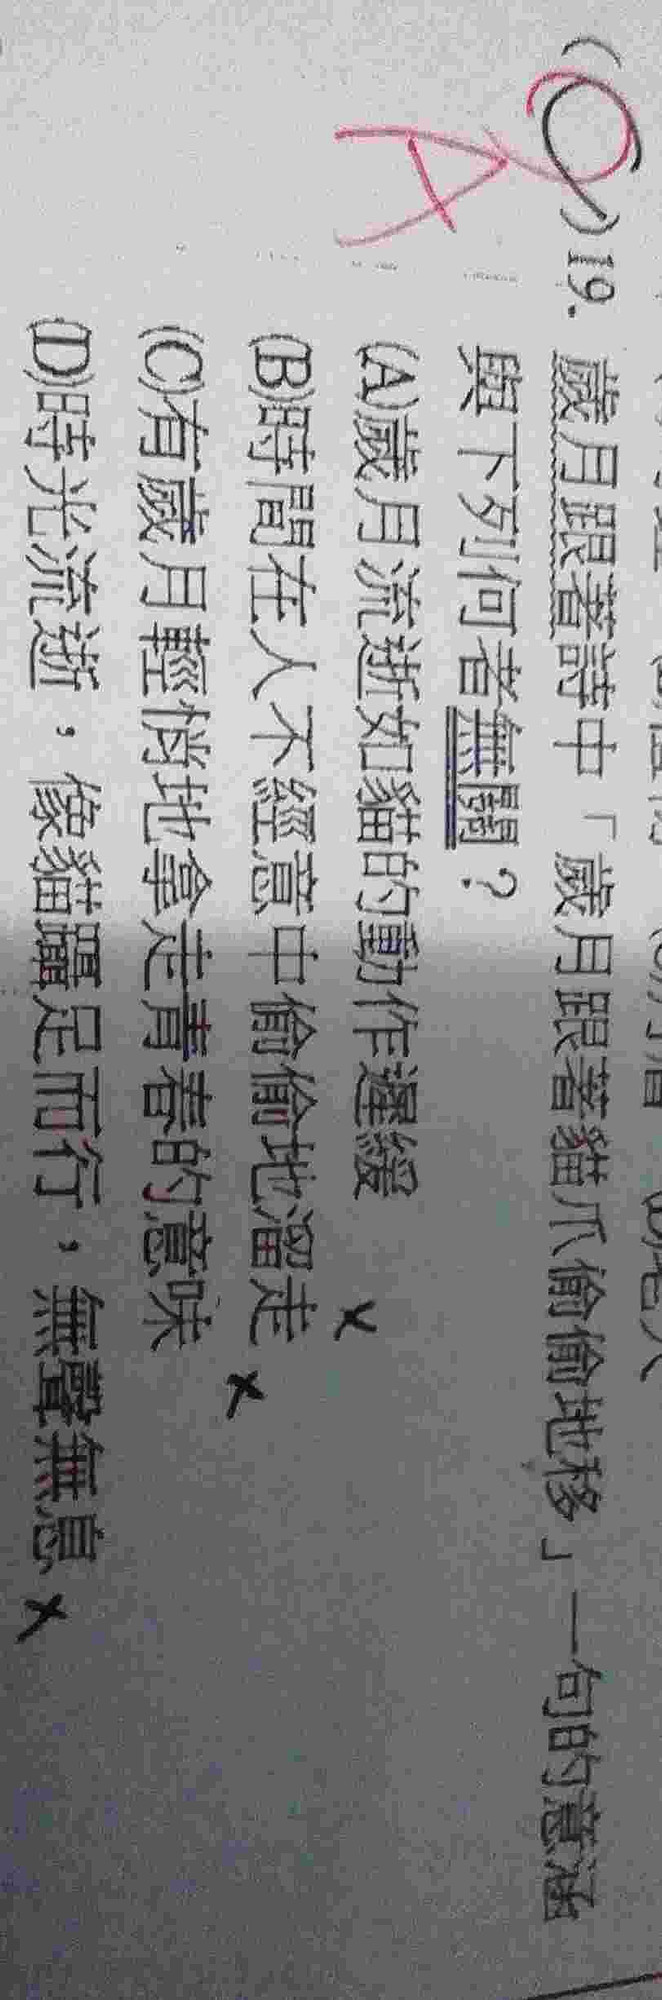 (C)19. 歲月跟著詩中「歲月跟著貓爪偷偷地移」一句的意涵
與下列何者無關？
(A)歲月流逝如貓的動作遲緩 ×
(B)時間在人不經意中偷偷地溜走 ×
(C)有歲月輕悄地拿走青春的意味
(D)時光流逝，像貓躡足而行，無聲無息 ×
A